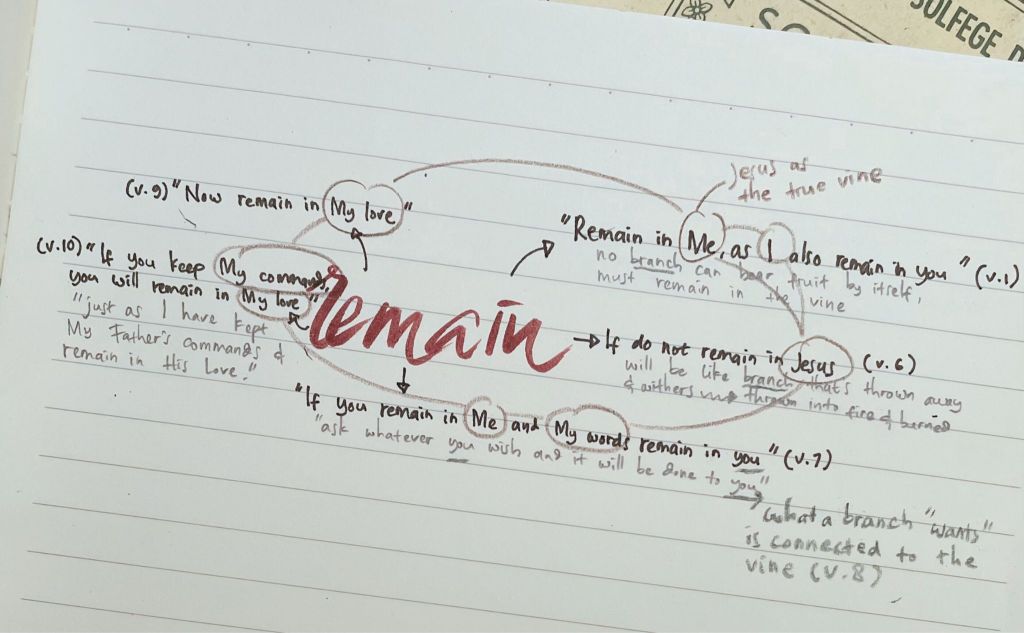 SOLFEGE
Jesus as
the true vine
(v.9) "Now remain in My love"
"Remain in Me, as I also remain in you" (v.1)
no branch can bear fruit by itself,
must remain in the vine
(v.10) "If you keep My commands,
you will remain in My love"
"just as I have kept
My Father's commands &
remain in His Love."
remain
If do not remain in Jesus (v.6)
will be like branch that's thrown away
& withers → thrown into fire & burned
"If you remain in Me and My words remain in you" (v.7)
"ask whatever you wish and it will be done to you"
→ what a branch "wants"
is connected to the
vine (v.8)